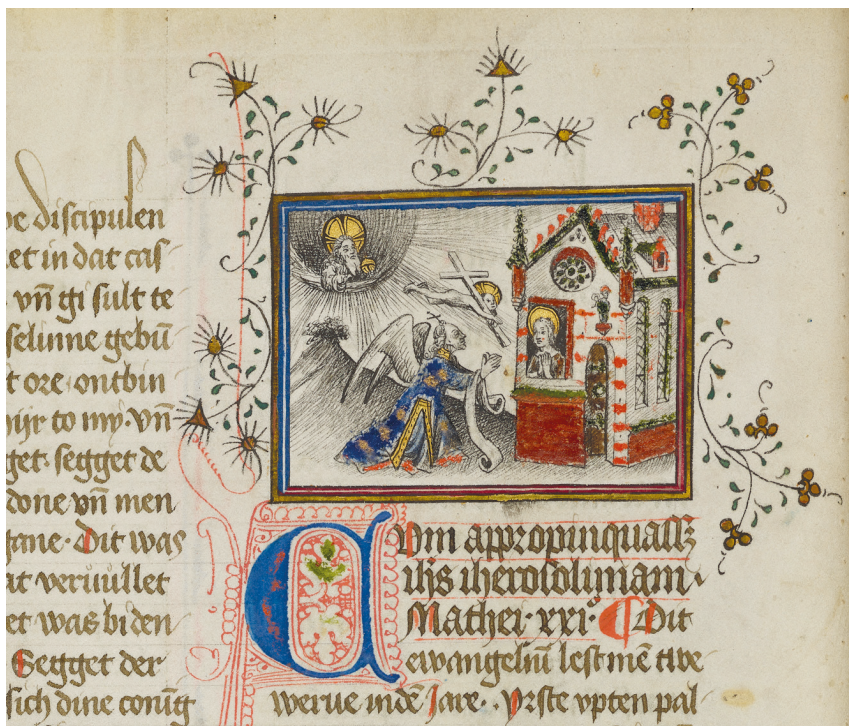 discipulen
et in dat cas
vn̄ gi sult te
eselinne gebū
t ore. ontbin
to my. vn̄
get. segget de
done vn̄ men
gane. Dit was
at veruullet
et was biden
Segget der
sich dine coning
Cum appropinquasz
ihs iherosolimam.
Mathei. xxi. Dit
ewangeliū lestmē twe
werue indē Jare. Yrste vpten pal